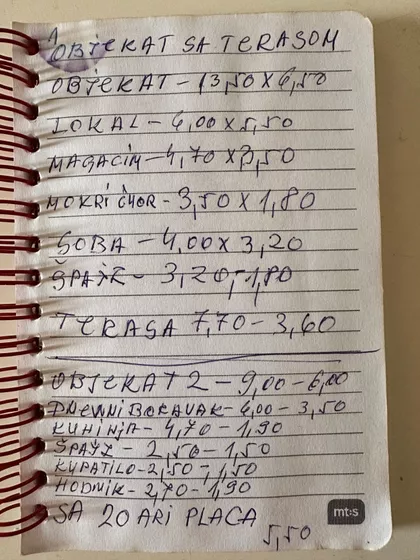 1
OBJEKAT SA TERASOM
OBJEKAT - 13,50 X 6,50
LOKAL - 6,00 X 5,50
MAGACIN - 4,70 X 3,50
MOKRI ČVOR - 3,50 X 1,80
SOBA - 4,00 X 3,20
ŠPAJZ - 3,20 - 1,80
TERASA 7,70 - 3,60
OBJEKAT 2 - 9,00 - 6,00
DNEVNI BORAVAK - 6,00 - 3,50
KUHINJA - 4,70 - 1,90
ŠPAJZ - 2,50 - 1,50
KUPATILO - 2,50 - 1,50
HODNIK - 2,70 - 1,90
SA 20 ARI PLACA
5,50
mt:s